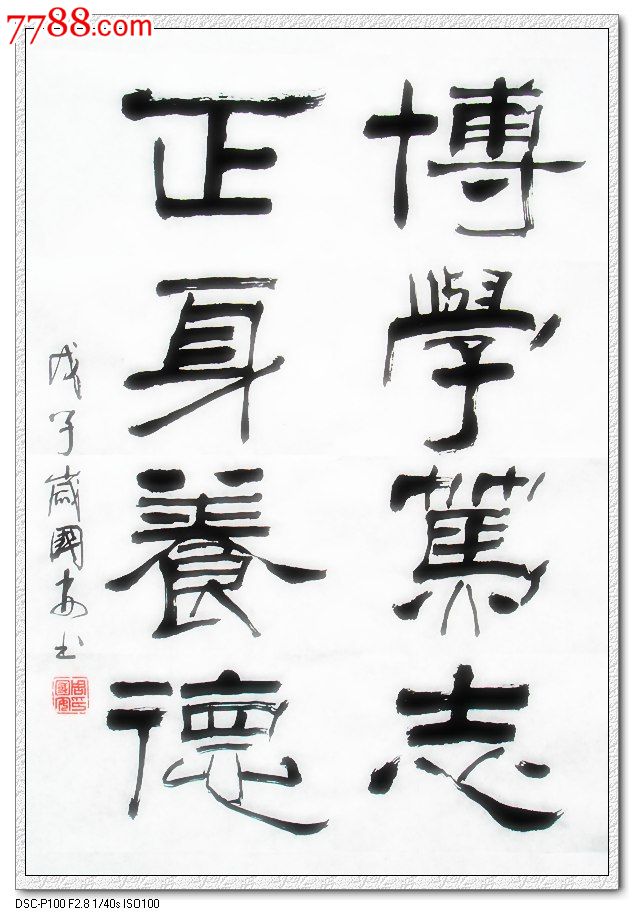 7788.com
博學篤志
正身養德
戊子歲國安书
DSC-P100 F2.8 1/40s ISO100